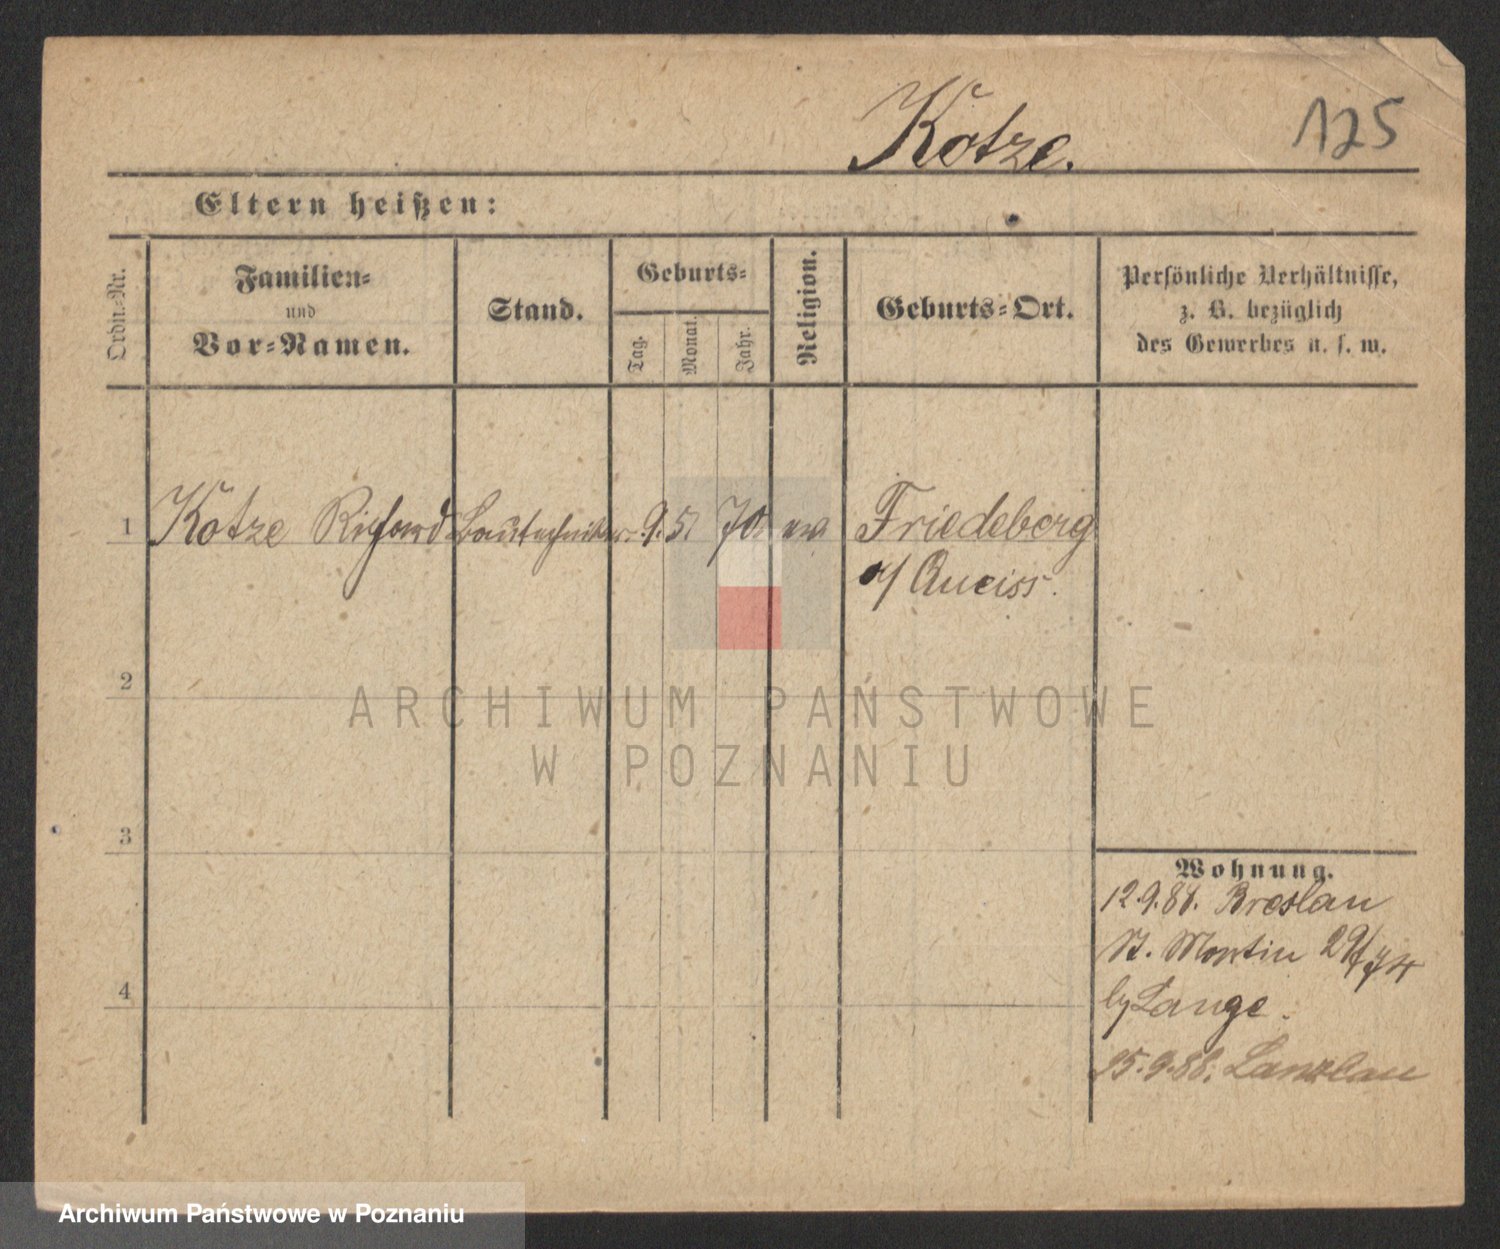 Kotze.
125
Eltern heißen:
Ordn.-Nr.
Familien-
und
Vor-Namen.
Stand.
Geburts-
Tag.
Monat.
Jahr.
Religion.
Geburts-Ort.
Persönliche Verhältnisse,
z. B. bezüglich
des Gewerbes u. s. w.
1 Kotze Richard Bautechniker 9. 5. 70. ev Friedeberg
a/ Queiss.
2
3
4
Wohnung.
12.9.88. Breslau
St. Martin 29
Lange.
15.9.88.
ARCHIWUM PAŃSTWOWE
W POZNANIU
Archiwum Państwowe w Poznaniu